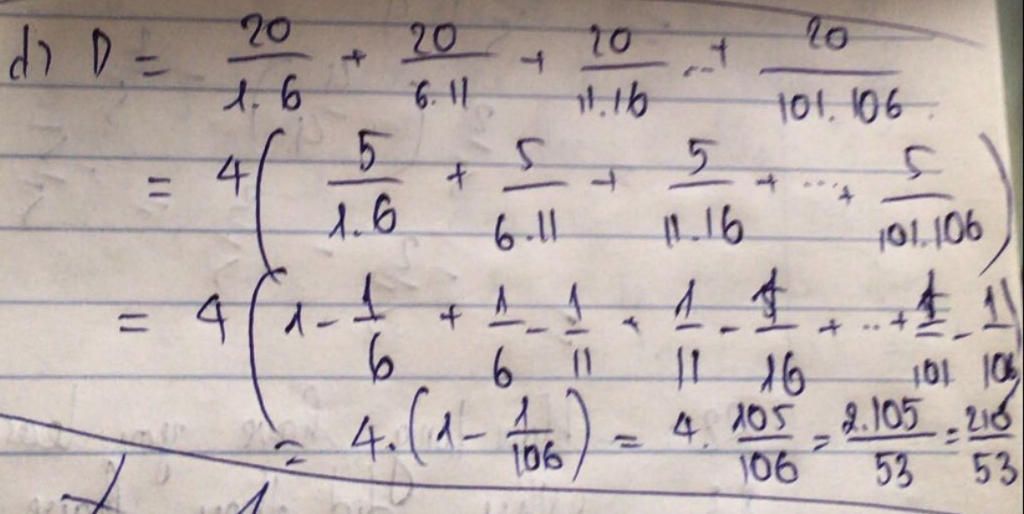 d) D = 20/1.6 + 20/6.11 + 20/11.16 ..+ 20/101.106
= 4(5/1.6 + 5/6.11 + 5/11.16 + ...+ 5/101.106)
= 4(1 - 1/6 + 1/6 - 1/11 + 1/11 - 1/16 + ..+ 1/101 - 1/106)
= 4.(1 - 1/106) = 4. 105/106 = 2.105/53 = 210/53